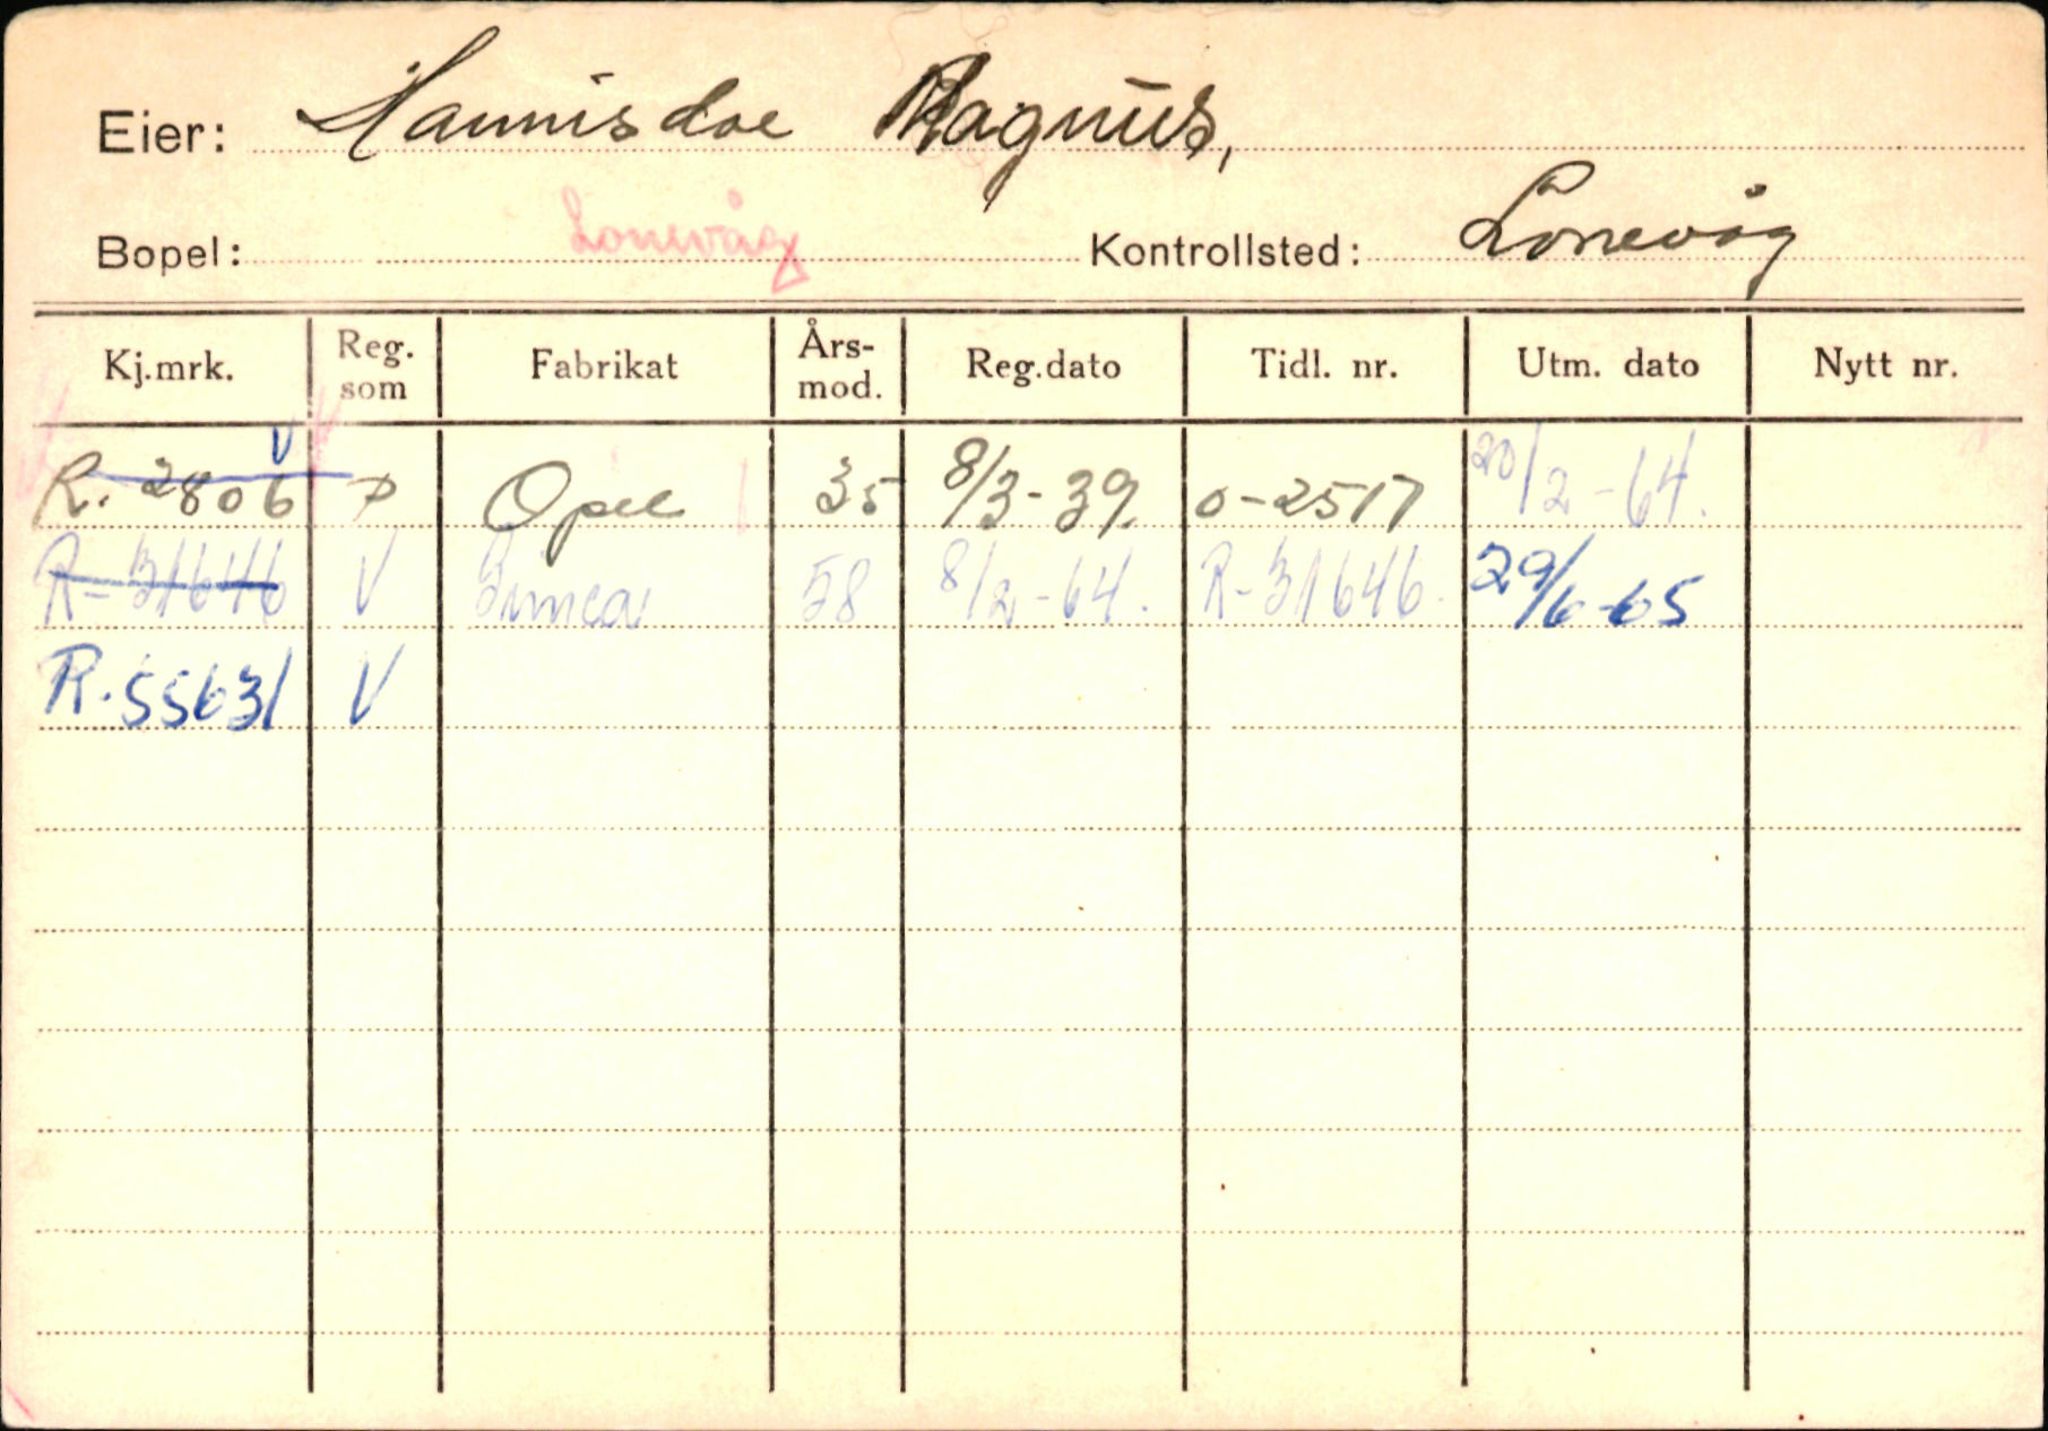 Eier: Hannisdal Magnus,
Bopel: Lonevåg Kontrollsted: Lonevåg
Kj.mrk. Reg. som Fabrikat Års-mod. Reg.dato Tidl. nr. Utm. dato Nytt nr.
V
R. 2806 P Opel 35 8/3-39. o-2517 20/2-64.
R-31646 V Simca 58 8/2-64. R-31646. 29/6-65
R.55631 V